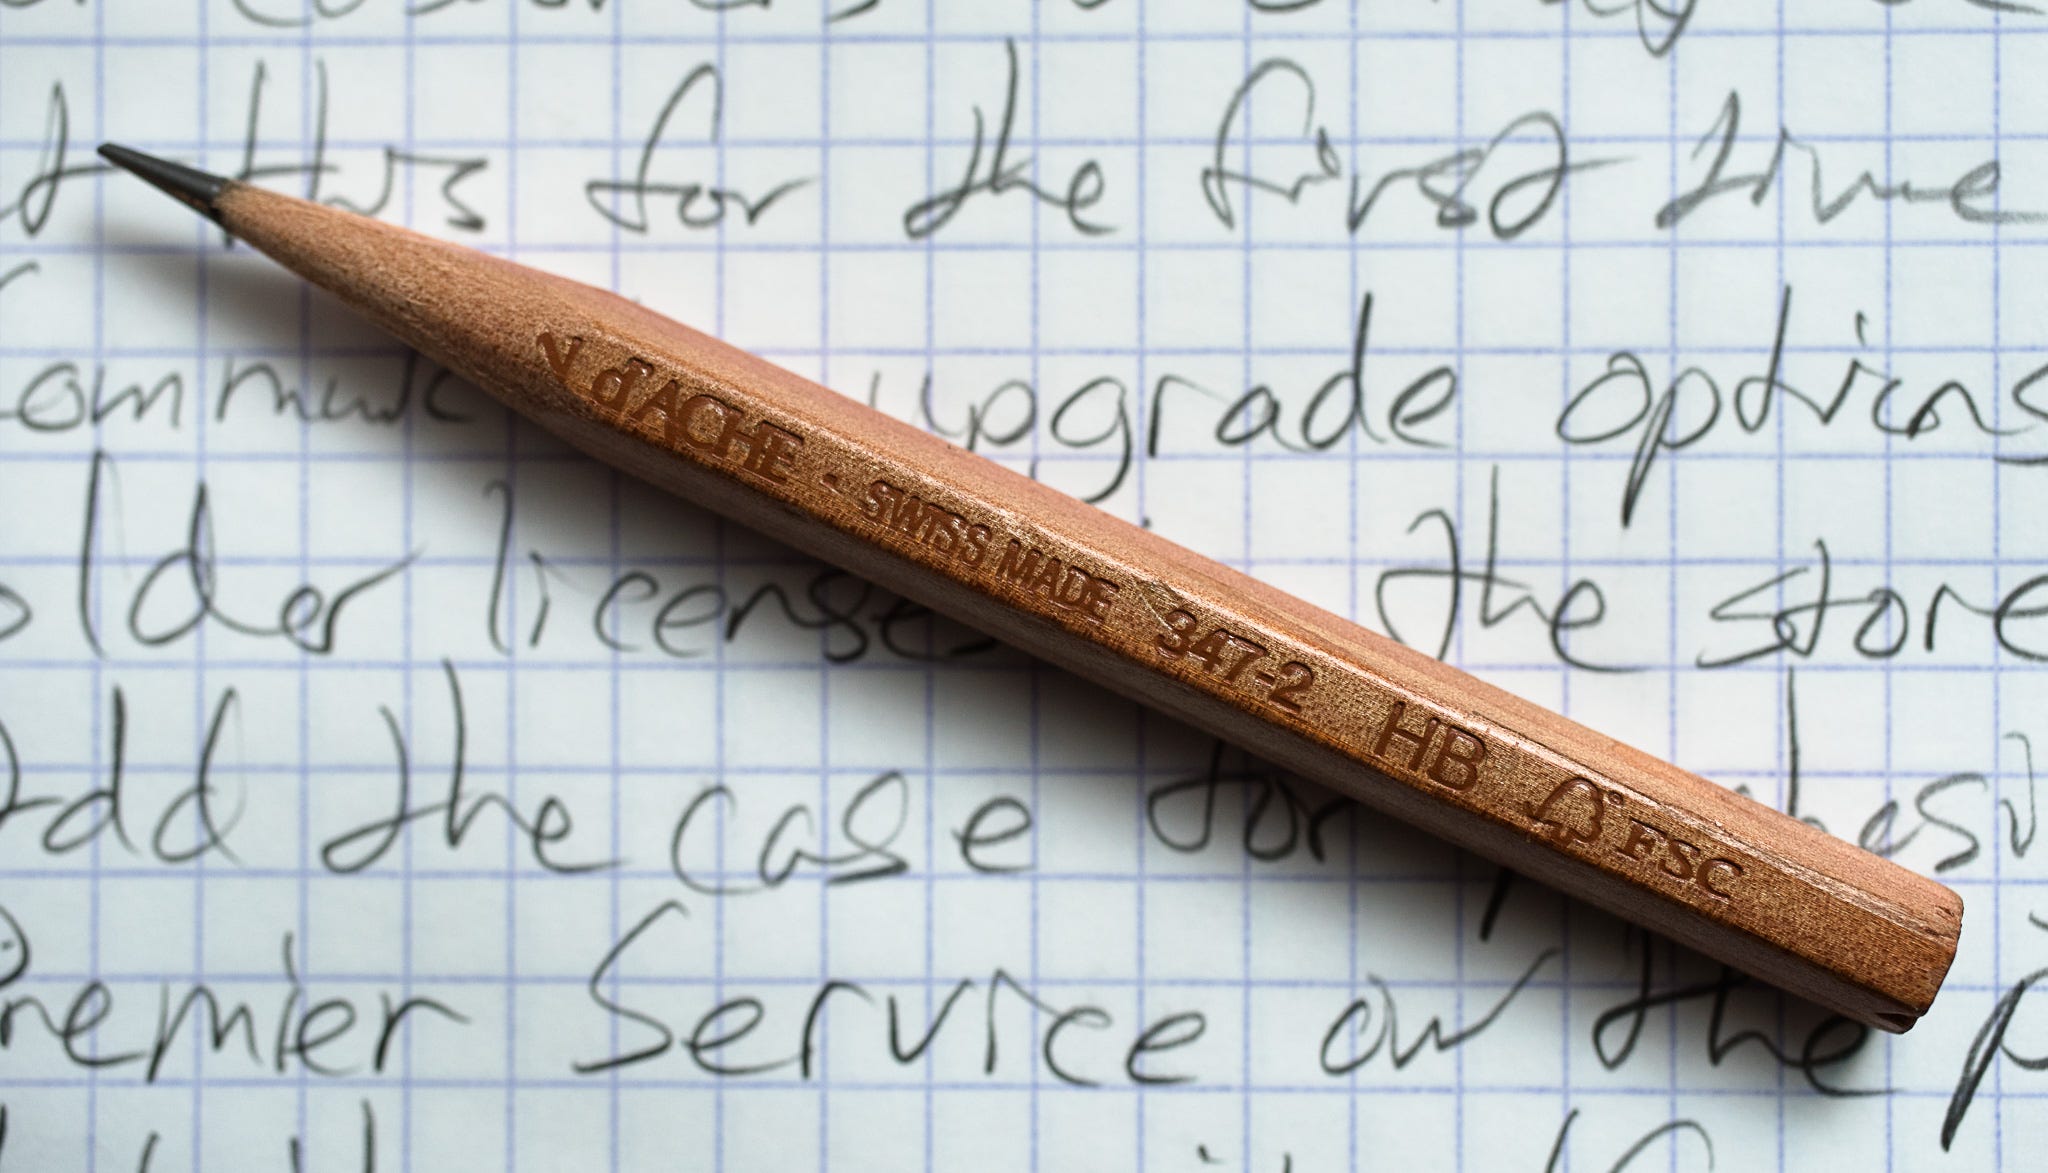 this for the first time
upgrade options
older licenses the store
add the case for
Premier Service on the
d'ACHE - SWISS MADE 347-2 HB FSC